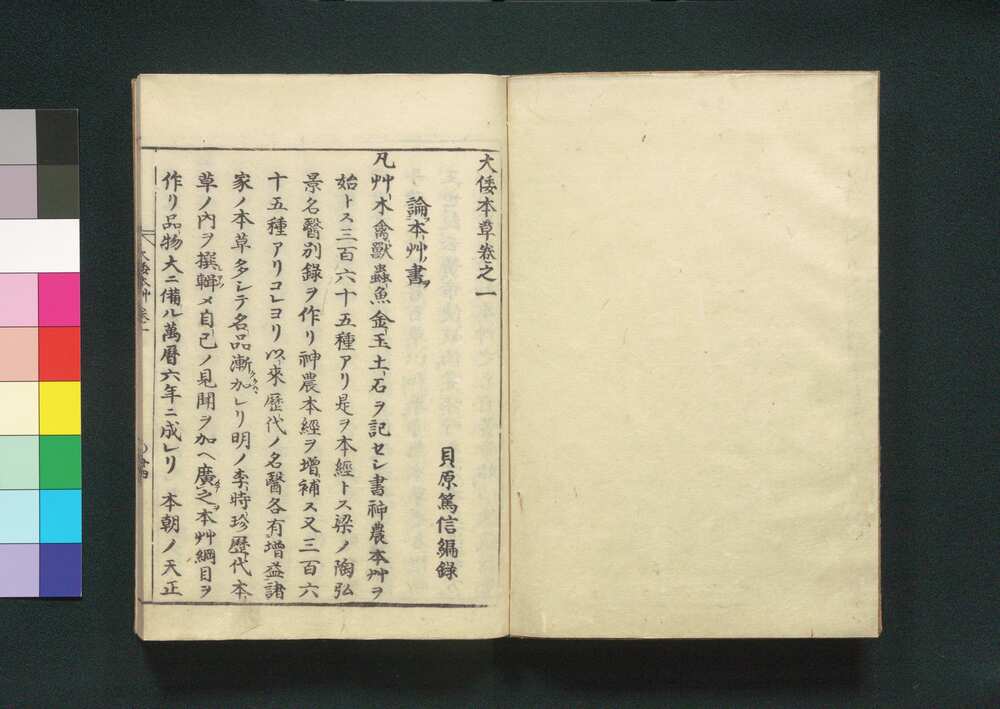 大倭本草卷之一
貝原篤信編錄
論本艸書
凡艸木禽獸蟲魚金玉土石ヲ記セシ書神農本艸ヲ
始トス三百六十五種アリ是ヲ本經トス梁ノ陶弘
景名醫別錄ヲ作リ神農本經ヲ增補ス又三百六
十五種アリコレヨリ以來歷代ノ名醫各有增益諸
家ノ本草多シテ名品漸加レリ明ノ李時珍歷代本
草ノ內ヲ撰輯メ自己ノ見聞ヲ加ヘ廣之本艸綱目ヲ
作リ品物大ニ備ル萬曆六年ニ成レリ 本朝ノ天正
大倭本艸卷一